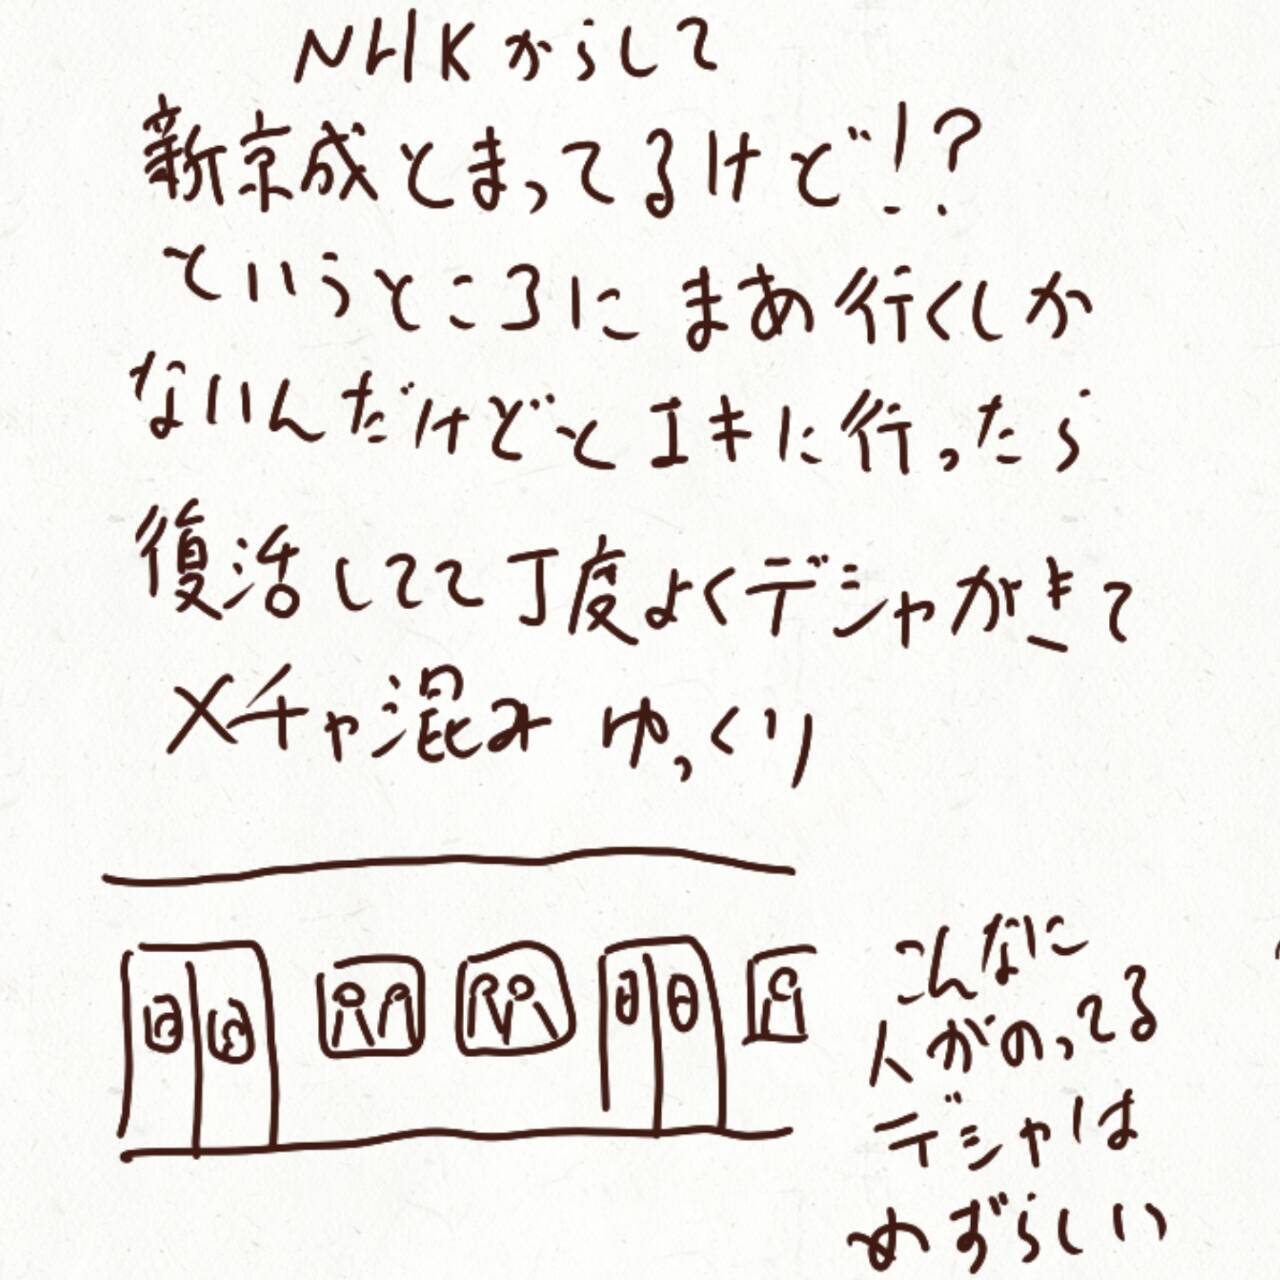 NHKからして
新京成とまってるけど!?
というところにまあ行くしか
ないんだけどとエキに行ったら
復活してて丁度よくデシャがきて
メチャ混みゆっくり
こんなに
人がのってる
デシャは
めずらしい